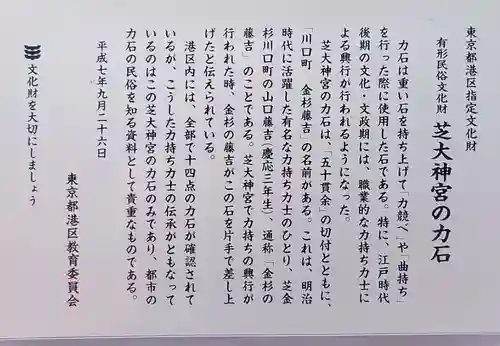 東京都港区指定文化財
有形民俗文化財 芝大神宮の力石
力石は重い石を持ち上げて「力競べ」や「曲持ち」
を行った際に使用した石である。特に、江戸時代
後期の文化・文政期には、職業的な力持ち力士に
よる興行が行われるようになった。
芝大神宮の力石は、「五十貫余」の切付とともに、
「川口町 金杉藤吉」の名前がある。これは、明治
時代に活躍した有名な力持ち力士のひとり、芝金
杉川口町の山口藤吉(慶応二年生)、通称「金杉の
藤吉」のことである。芝大神宮で力持ちの興行が
行われた時、金杉の藤吉がこの石を片手で差し上
げたと伝えられている。
港区内には、全部で十四点の力石が確認されて
いるが、こうした力持ち力士の伝承がともなって
いるのはこの芝大神宮の力石のみであり、都市の
力石の民俗を知る資料として貴重なものである。
平成七年九月二十六日
東京都港区教育委員会
文化財を大切にしましょう